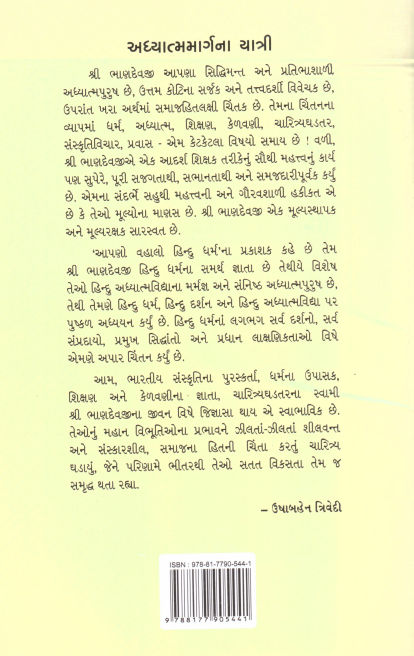 અધ્યાત્મમાર્ગના યાત્રી
શ્રી ભાણદેવજી આપણા સિદ્ધિમન્ત અને પ્રતિભાશાળી
અધ્યાત્મપુરુષ છે, ઉત્તમ કોટિના સર્જક અને તત્ત્વદર્શી વિવેચક છે,
ઉપરાંત ખરા અર્થમાં સમાજહિતલક્ષી ચિંતક છે. તેમના ચિંતનના
વ્યાપમાં ધર્મ, અધ્યાત્મ, શિક્ષણ, કેળવણી, ચારિત્ર્યઘડતર,
સંસ્કૃતિવિચાર, પ્રવાસ - એમ કેટકેટલા વિષયો સમાય છે ! વળી,
શ્રી ભાણદેવજીએ એક આદર્શ શિક્ષક તરીકેનું સૌથી મહત્ત્વનું કાર્ય
પણ સુપેરે, પૂરી સજગતાથી, સભાનતાથી અને સમજદારીપૂર્વક કર્યું
છે. એમના સંદર્ભે સહુથી મહત્ત્વની અને ગૌરવશાળી હકીકત એ
છે કે તેઓ મૂલ્યોના માણસ છે. શ્રી ભાણદેવજી એક મૂલ્યસ્થાપક
અને મૂલ્યરક્ષક સારસ્વત છે.
'આપણો વહાલો હિન્દુ ધર્મ'ના પ્રકાશક કહે છે તેમ
શ્રી ભાણદેવજી હિન્દુ ધર્મના સમર્થ જ્ઞાતા છે તેથીયે વિશેષ
તેઓ હિન્દુ અધ્યાત્મવિદ્યાના મર્મજ્ઞ અને સંનિષ્ઠ અધ્યાત્મપુરુષ છે,
તેથી તેમણે હિન્દુ ધર્મ, હિન્દુ દર્શન અને હિન્દુ અધ્યાત્મવિદ્યા પર
પુષ્કળ અધ્યયન કર્યું છે. હિન્દુ ધર્મનાં લગભગ સર્વ દર્શનો, સર્વ
સંપ્રદાયો, પ્રમુખ સિદ્ધાંતો અને પ્રધાન લાક્ષણિકતાઓ વિષે
એમણે અપાર ચિંતન કર્યું છે.
આમ, ભારતીય સંસ્કૃતિના પુરસ્કર્તા, ધર્મના ઉપાસક,
શિક્ષણ અને કેળવણીના જ્ઞાતા, ચારિત્ર્યઘડતરના સ્વામી
શ્રી ભાણદેવજીના જીવન વિષે જિજ્ઞાસા થાય એ સ્વાભાવિક છે.
તેઓનું મહાન વિભૂતિઓના પ્રભાવને ઝીલતાં-ઝીલતાં શીલવન્ત
અને સંસ્કારશીલ, સમાજના હિતની ચિંતા કરતું ચારિત્ર્ય
ઘડાયું, જેને પરિણામે ભીતરથી તેઓ સતત વિકસતા તેમ જ
સમૃદ્ધ થતા રહ્યા.
– ઉષાબહેન ત્રિવેદી
ISBN : 978-81-7790-544-1
9 788177 905441